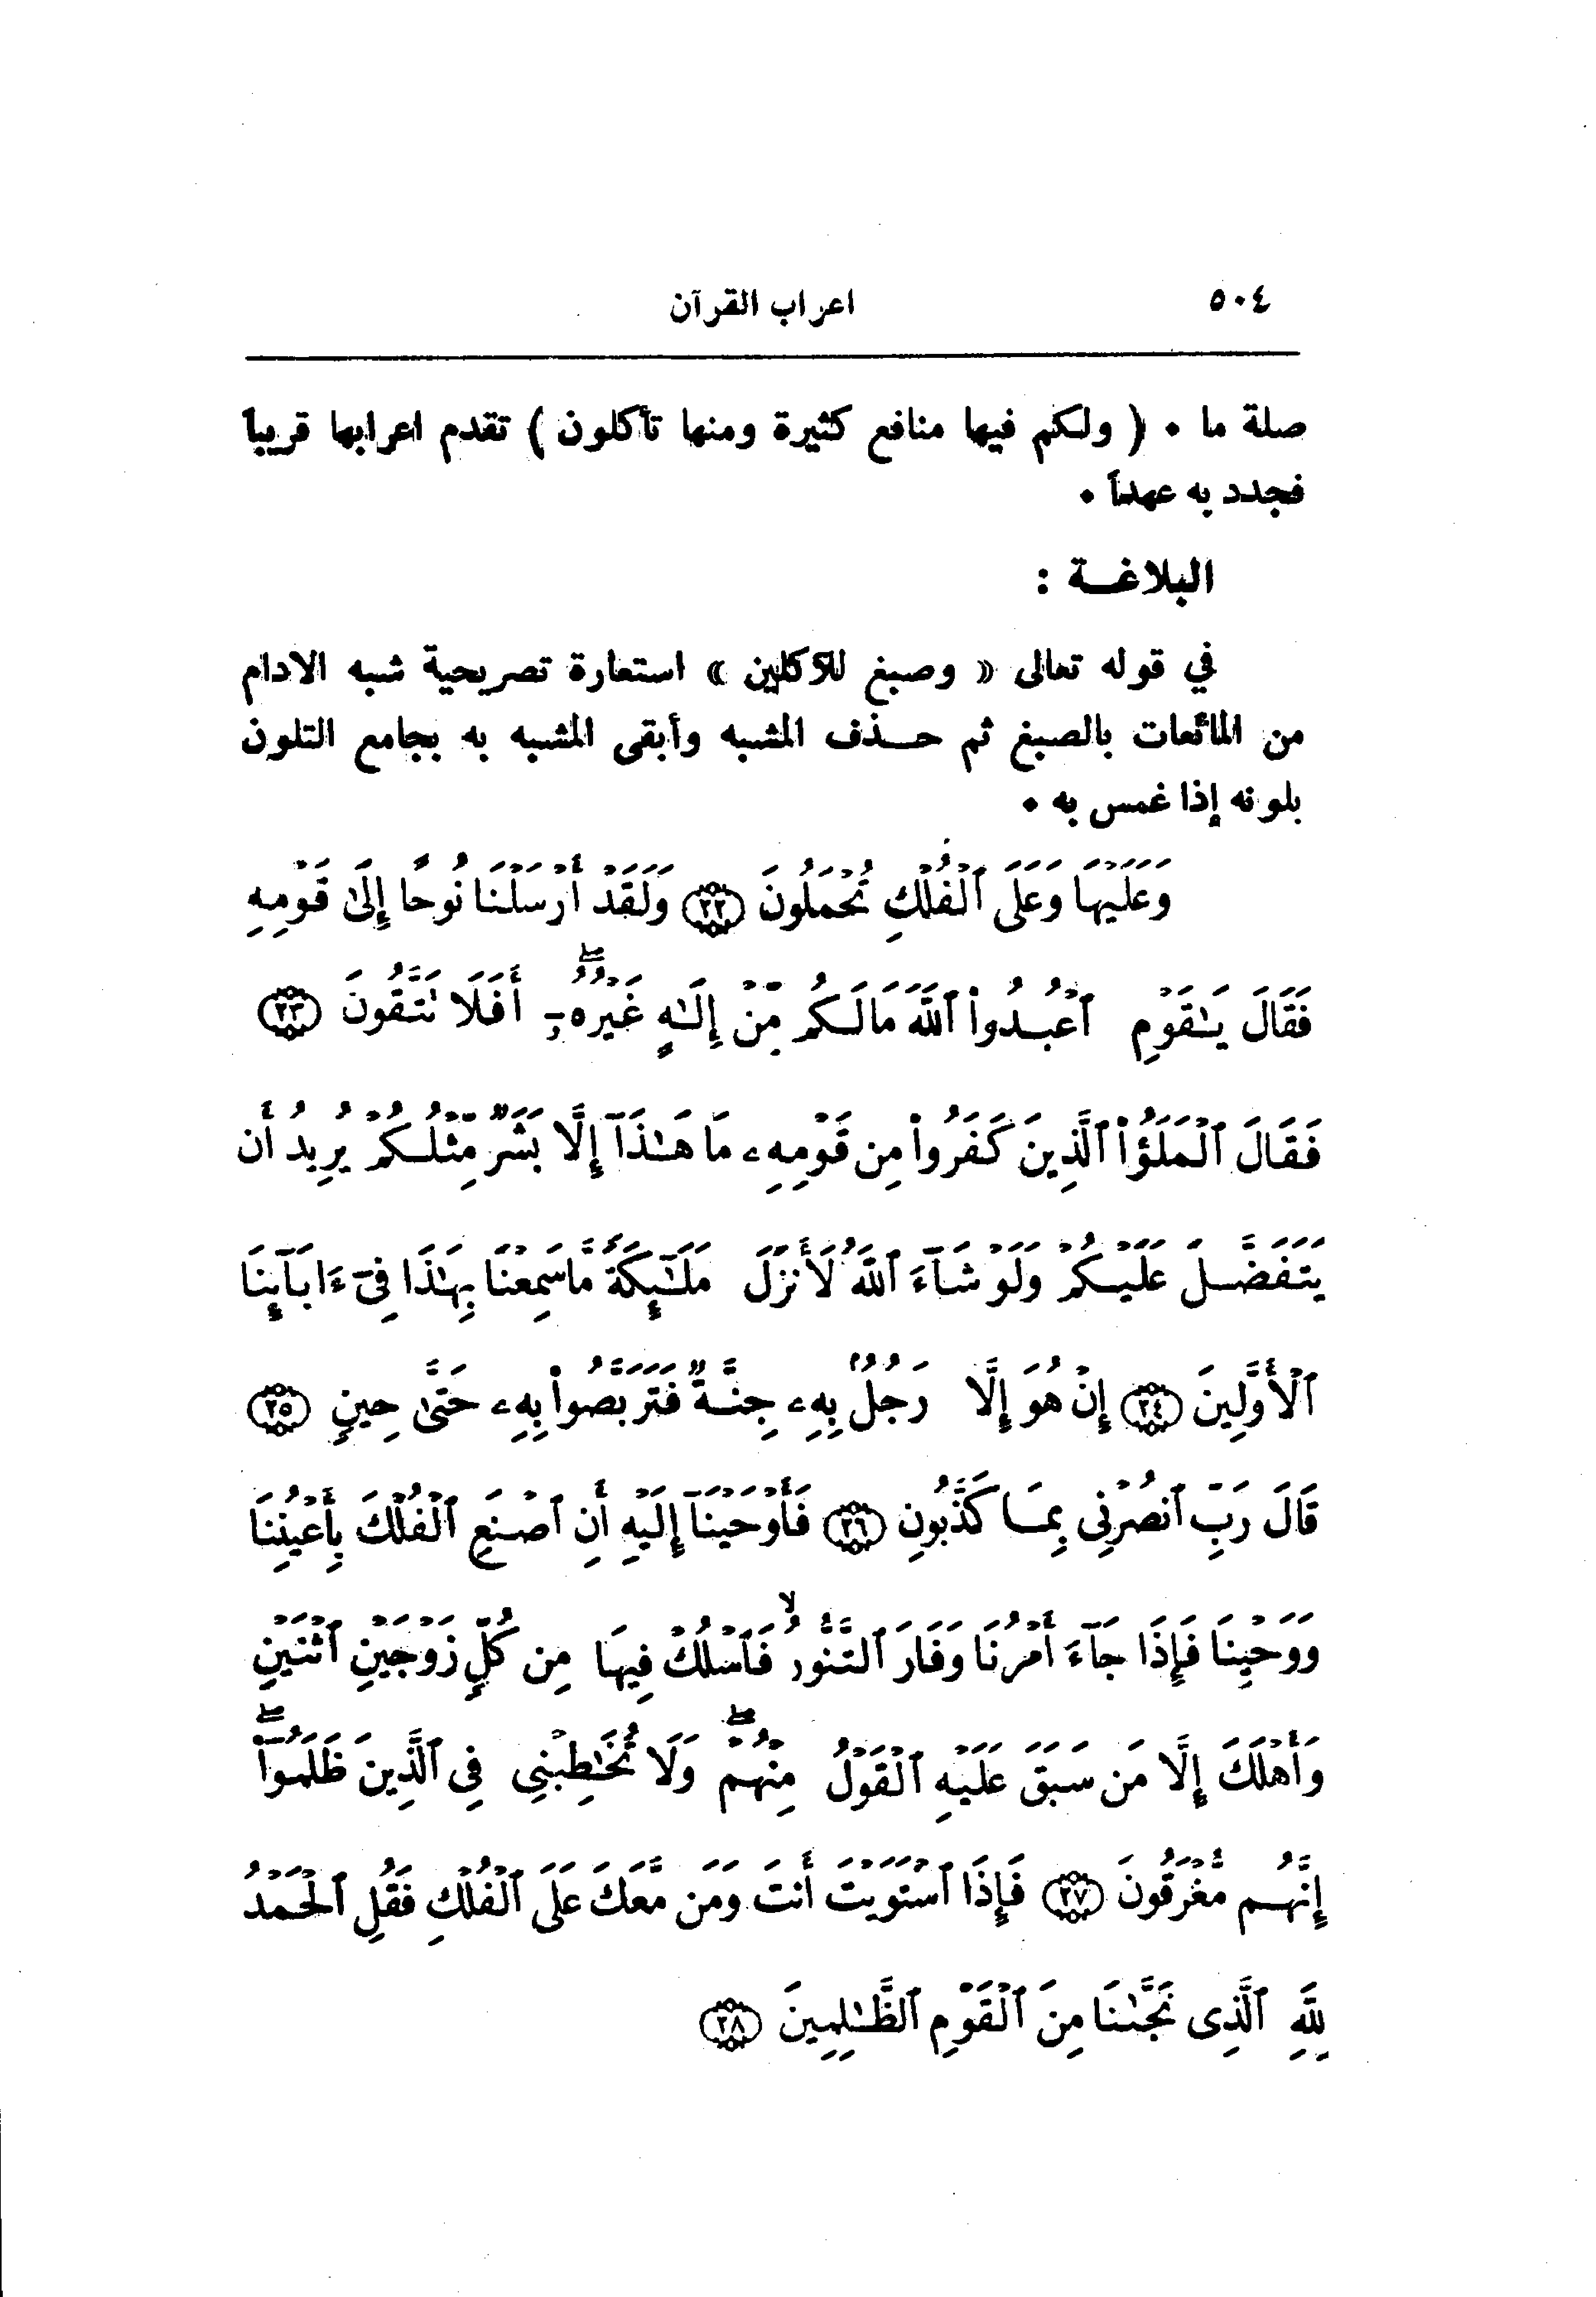 ٥٠٤ اعراب القرآن
صلة ما . ( ولكم فيها منافع كثيرة ومنها تأكلون ) تقدم اعرابها قريباً
فجدد به عهداً .
البلاغـة :
في قوله تعالى « وصبغ للآكلين » استعارة تصريحية شبه الادام
من المائعات بالصبغ ثم حـذف المشبه وأبقى المشبه به بجامع التلون
بلونه إذا غمس به .
وَعَلَيْهَا وَعَلَى ٱلْفُلْكِ تُحْمَلُونَ ﴿٢٢﴾ وَلَقَدْ أَرْسَلْنَا نُوحًا إِلَىٰ قَوْمِهِ
فَقَالَ يَـٰقَوْمِ ٱعْبُدُوا۟ ٱللَّهَ مَا لَكُم مِّنْ إِلَـٰهٍ غَيْرُهُۥٓ ۖ أَفَلَا تَتَّقُونَ ﴿٢٣﴾
فَقَالَ ٱلْمَلَؤُا۟ ٱلَّذِينَ كَفَرُوا۟ مِن قَوْمِهِۦ مَا هَـٰذَآ إِلَّا بَشَرٌ مِّثْلُكُمْ يُرِيدُ أَن
يَتَفَضَّلَ عَلَيْكُمْ وَلَوْ شَآءَ ٱللَّهُ لَأَنزَلَ مَلَـٰٓئِكَةً مَّا سَمِعْنَا بِهَـٰذَا فِىٓ ءَابَآئِنَا
ٱلْأَوَّلِينَ ﴿٢٤﴾ إِنْ هُوَ إِلَّا رَجُلٌۢ بِهِۦ جِنَّةٌ فَتَرَبَّصُوا۟ بِهِۦ حَتَّىٰ حِينٍ ﴿٢٥﴾
قَالَ رَبِّ ٱنصُرْنِى بِمَا كَذَّبُونِ ﴿٢٦﴾ فَأَوْحَيْنَآ إِلَيْهِ أَنِ ٱصْنَعِ ٱلْفُلْكَ بِأَعْيُنِنَا
وَوَحْيِنَا فَإِذَا جَآءَ أَمْرُنَا وَفَارَ ٱلتَّنُّورُ ۙ فَٱسْلُكْ فِيهَا مِن كُلٍّ زَوْجَيْنِ ٱثْنَيْنِ
وَأَهْلَكَ إِلَّا مَن سَبَقَ عَلَيْهِ ٱلْقَوْلُ مِنْهُمْ ۖ وَلَا تُخَـٰطِبْنِى فِى ٱلَّذِينَ ظَلَمُوٓا۟ ۖ
إِنَّهُم مُّغْرَقُونَ ﴿٢٧﴾ فَإِذَا ٱسْتَوَيْتَ أَنتَ وَمَن مَّعَكَ عَلَى ٱلْفُلْكِ فَقُلِ ٱلْحَمْدُ
لِلَّهِ ٱلَّذِى نَجَّىٰنَا مِنَ ٱلْقَوْمِ ٱلظَّـٰلِمِينَ ﴿٢٨﴾